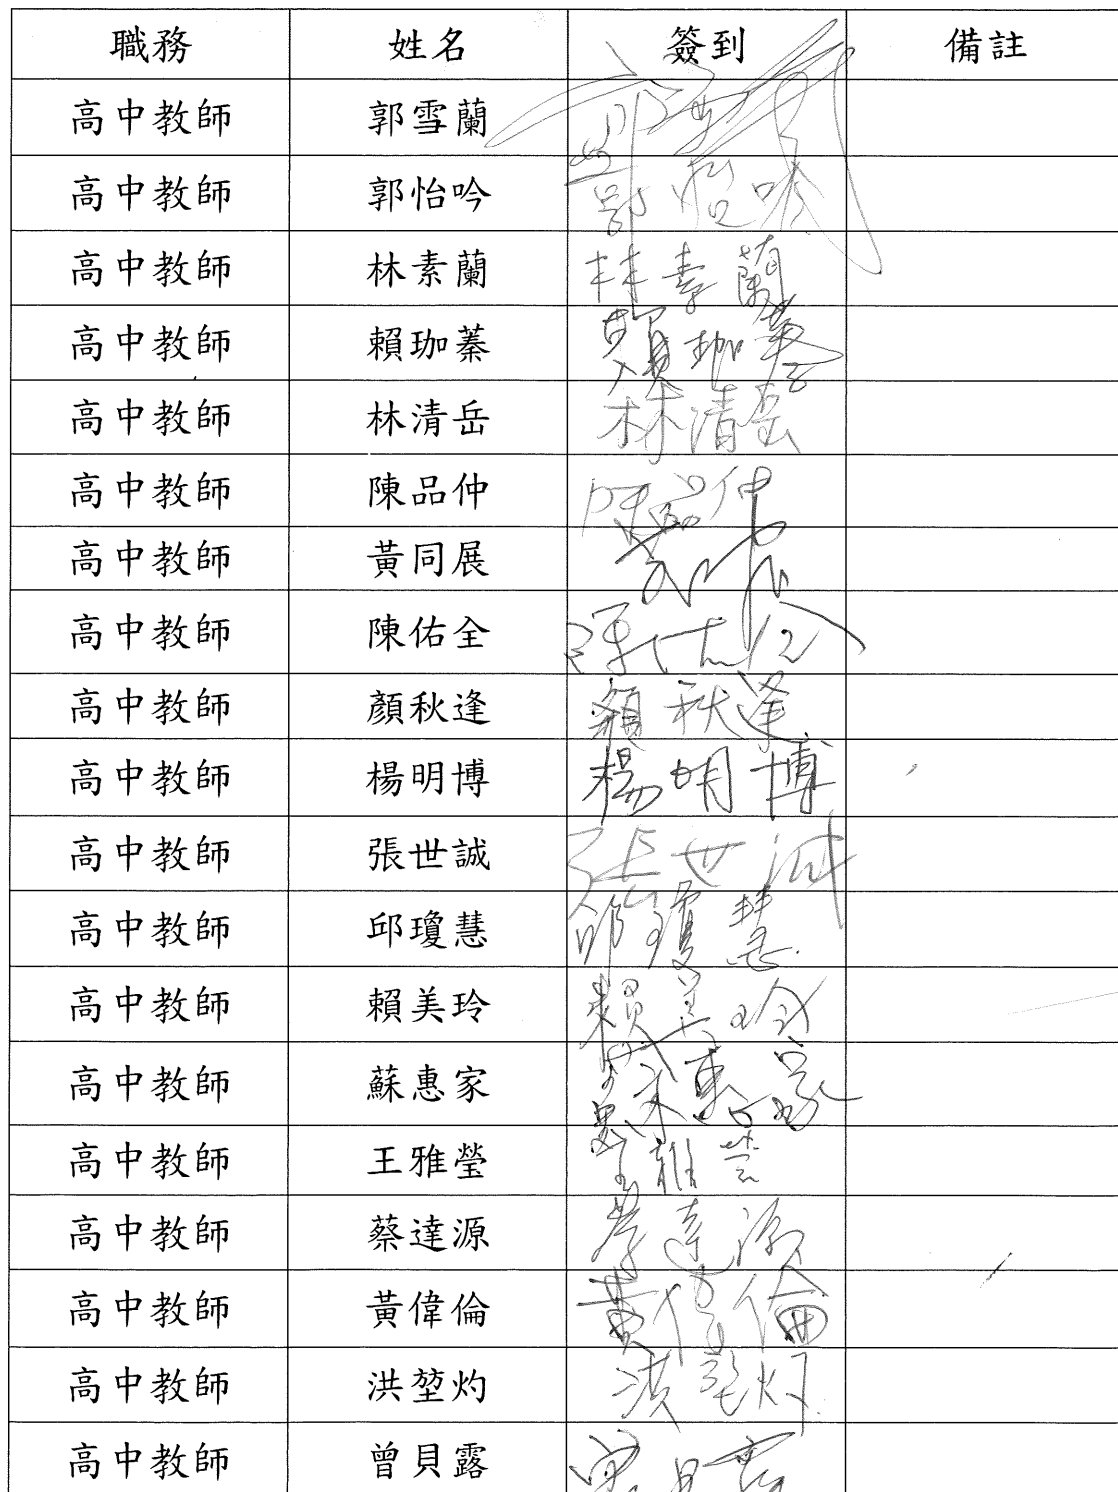 職務 姓名 簽到 備註
高中教師 郭雪蘭 郭雪蘭
高中教師 郭怡吟 郭怡吟
高中教師 林素蘭 林素蘭
高中教師 賴珈蓁 賴珈蓁
高中教師 林清岳 林清岳
高中教師 陳品仲 陳品仲
高中教師 黃同展
高中教師 陳佑全 陳佑全
高中教師 顏秋逢 顏秋逢
高中教師 楊明博 楊明博
高中教師 張世誠 張世誠
高中教師 邱瓊慧 邱瓊慧
高中教師 賴美玲 賴美玲
高中教師 蘇惠家 蘇惠家
高中教師 王雅瑩 王雅瑩
高中教師 蔡達源 蔡達源
高中教師 黃偉倫 黃偉倫
高中教師 洪堃灼 洪堃灼
高中教師 曾貝露